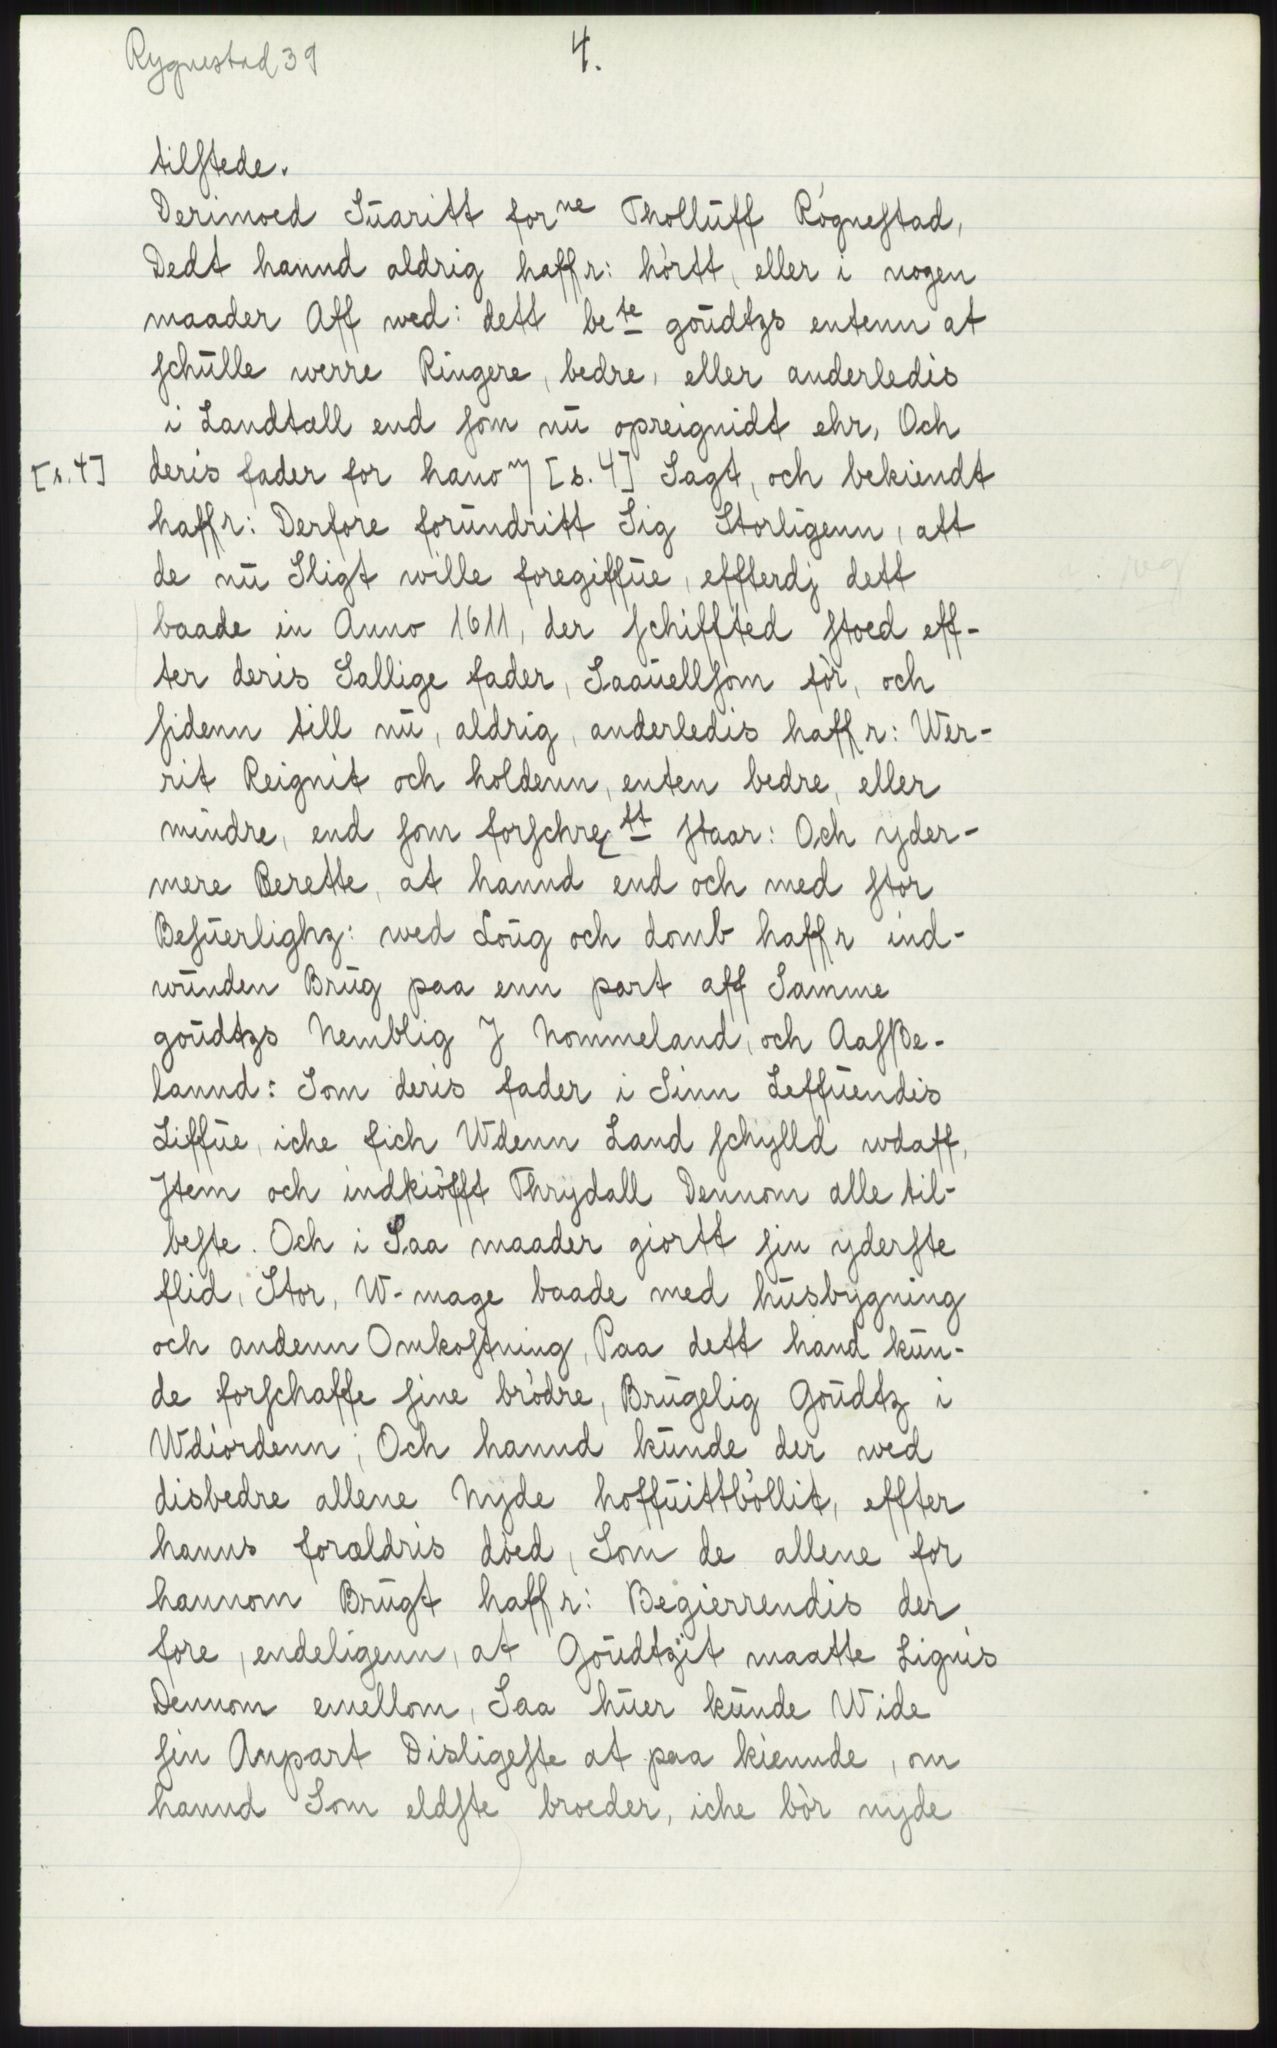 Rygnestad 39
4.
tilstede.
Derimoed Suaritt forne Tholluff Rógnestad,
Dedt hannd aldrig haffr: hórtt, eller i nogen
maader Aff wed: dett bete goudtzs entenn at
schulle werre Ringere, bedre, eller anderledis
i Landtall end som nu opreignidt ehr, Och
[s. 4] deris fader for hanom [s. 4] Sagt, och bekiendt
haffr: Derfore forundritt Sig Storligenn, att
de nu Sligt wille foregiffue, effterdj dett
baade in Anno 1611, der schiffted stoed eff-
ter deris Sallige fader, Saauellsom för, och
sidenn till nu, aldrig, anderledis haffr: Wer-
rit Reignit och holdenn, enten bedre, eller
mindre, end som forschreftt staar: Och yder-
mere Berette, at hannd end och med stor
Besuerlighz: wed Loug och domb haffr ind-
wunden Brug paa enn part aff Samme
goudtzs Nemblig J Nommeland, och Aasße-
lannd: Som deris fader i Sinn Leffuendis
Liffue, iche fich Wdenn Land schylld wdaff,
Jtem och indkiöfft Thrydall Dennom alle til-
beste. Och i Saa maader giortt sin yderste
flid, Stor, W-mage baade med husbygning
och andenn Omkostning, Paa dett hand kun-
de forschaffe sine brödre, Brugelig Goudtz i
Wdiordenn; Och hannd kunde der wed
disbedre allene Nyde hoffuittböllit, effter
hanns foraldris död, Som de allene for
hannom Brugt haffr: Begierrendis der
fore, endeligenn, at Goudtzit maatte Lignis
Dennom emellom, Saa huer kunde Wide
sin Anpart Disligeste at paa kiennde, om
hannd Som eldste broeder, iche bör nyde